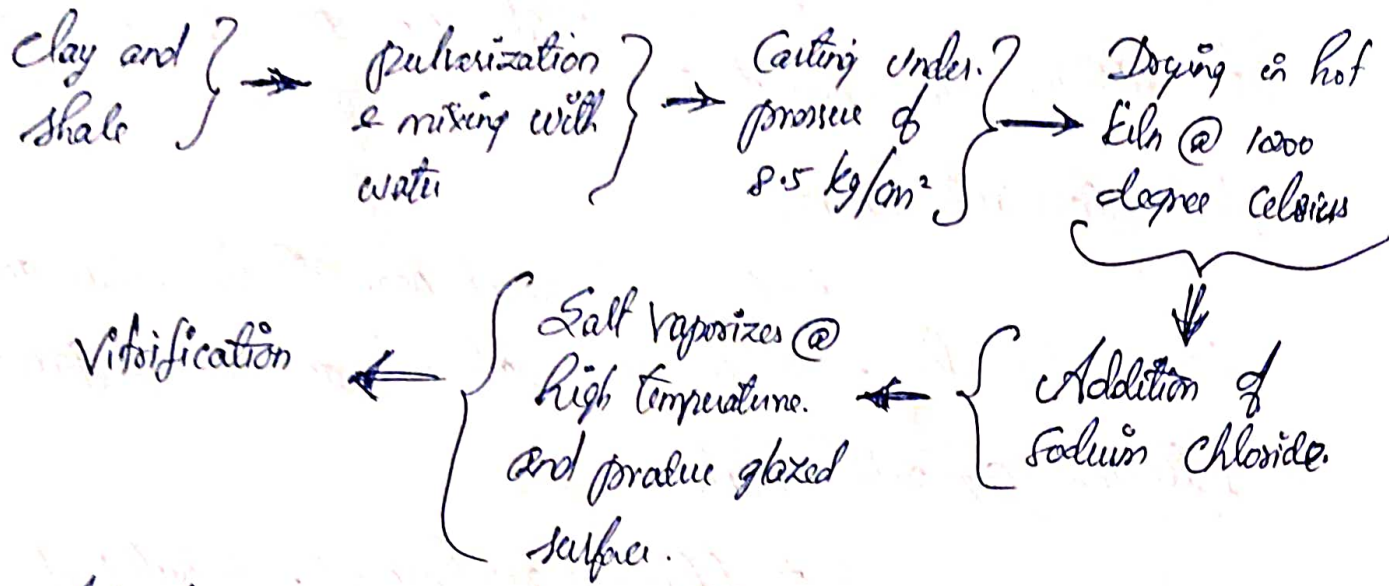 Clay and
Shale
pulverization
& mixing with
water
Casting under
pressure of
8.5 kg/cm²
Drying in hot
kiln @ 1000
degree Celsius
Addition of
Sodium Chloride.
Salt vaporizes @
high temperature.
and produce glazed
surface.
Vitrification